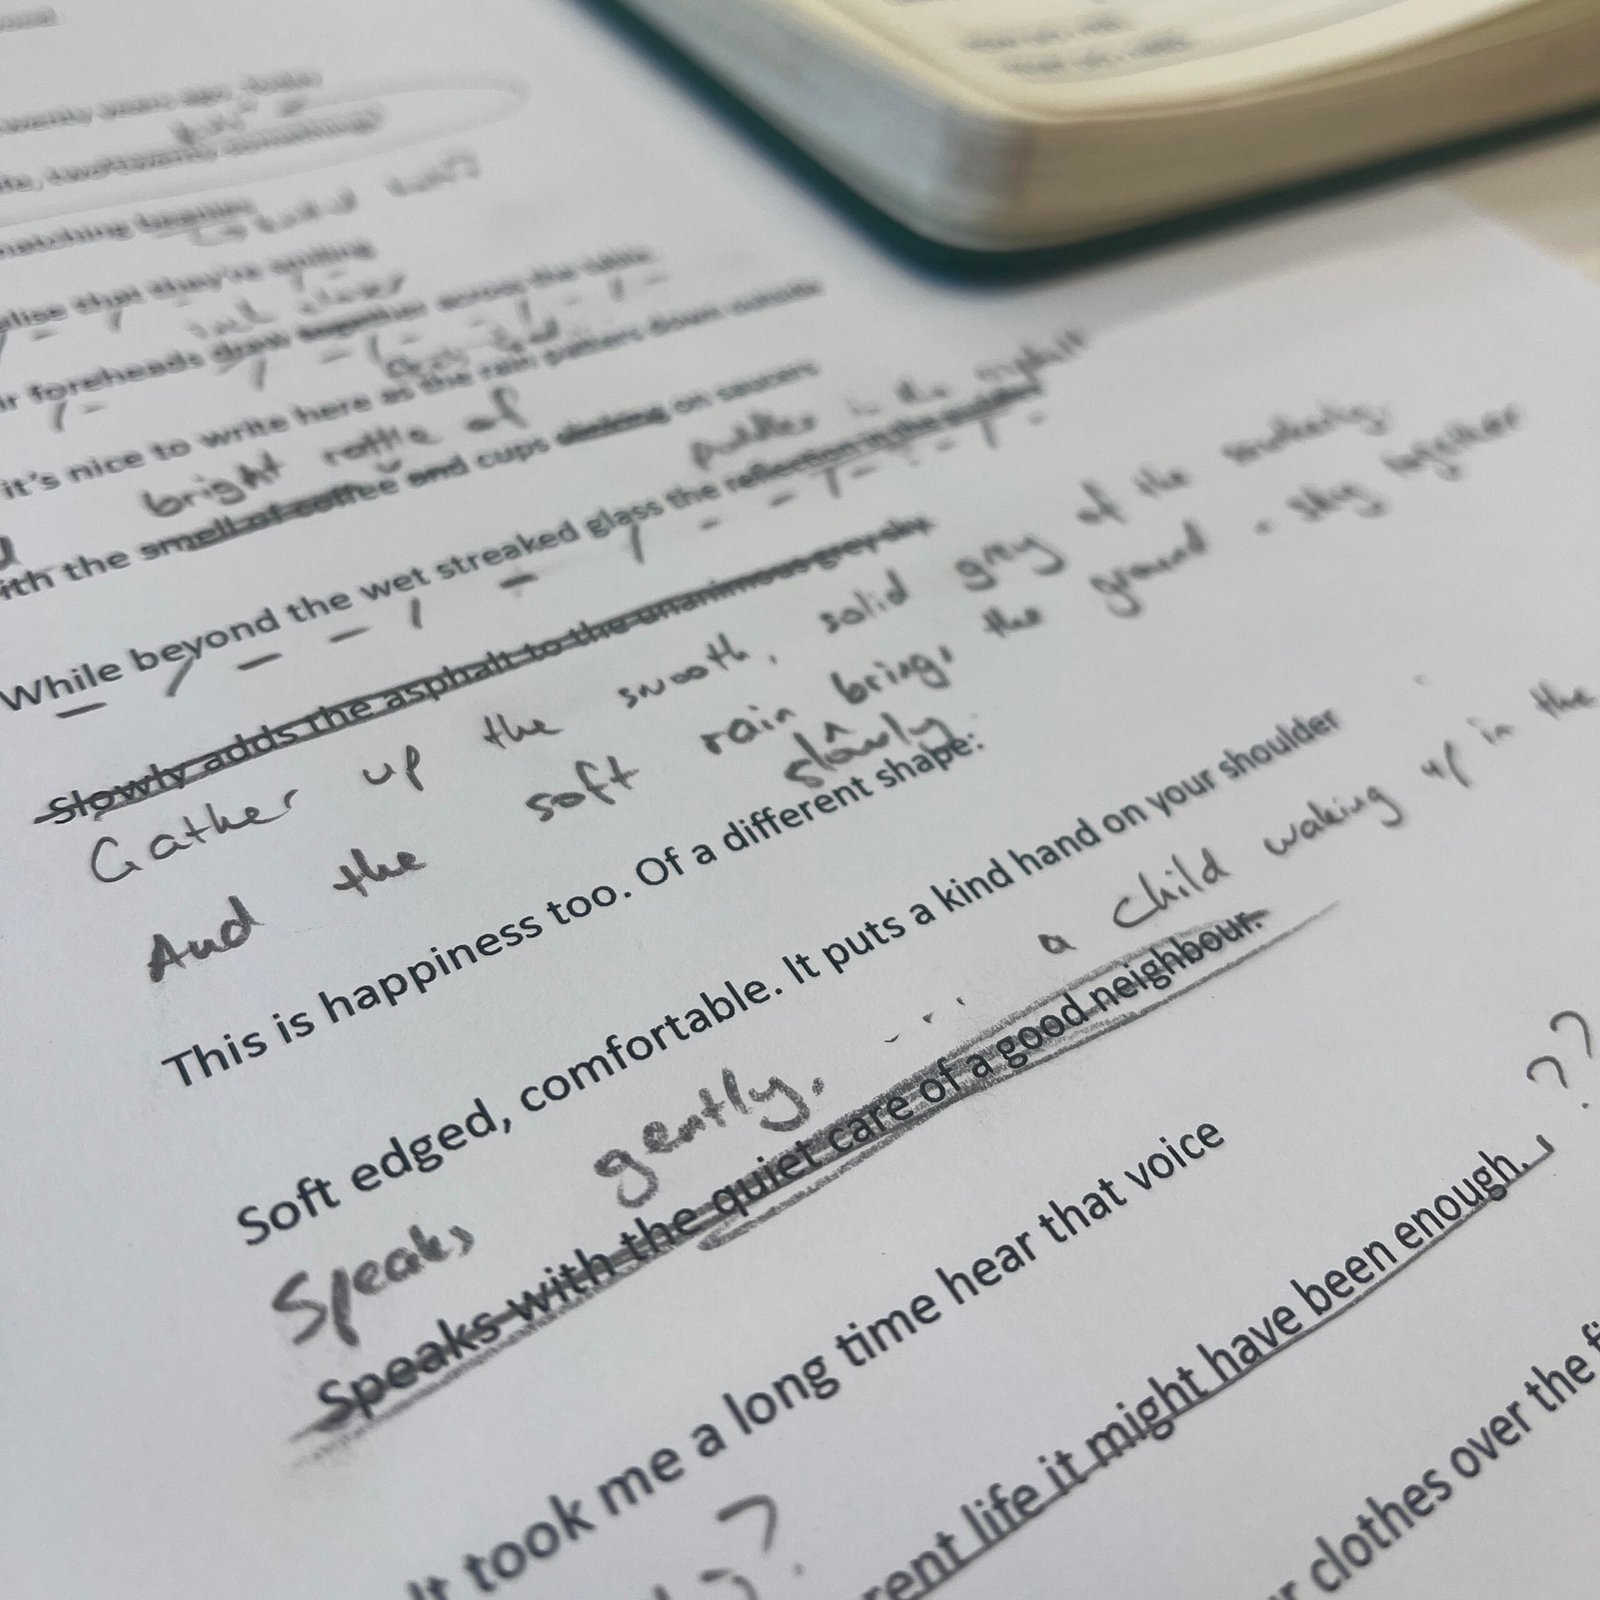 twenty years ago
twenty something?
matching beanies
that they're smiling
inch closer
foreheads draw together across the table
it's nice to write here as the rain patters down outside
bright rattle of
with the smell of coffee and cups clinking on saucers
puddles in the asphalt
While beyond the wet streaked glass the reflection in the
Slowly adds the asphalt to the unanimous grey sky.
Gather up the smooth, solid grey of the
And the soft rain brings the ground - sky together
slowly
This is happiness too. Of a different shape:
Soft edged, comfortable. It puts a kind hand on your shoulder
Speaks gently, ... a child waking up in the
Speaks with the quiet care of a good neighbour.
It took me a long time hear that voice
??
rent life it might have been enough.
?
r clothes over the